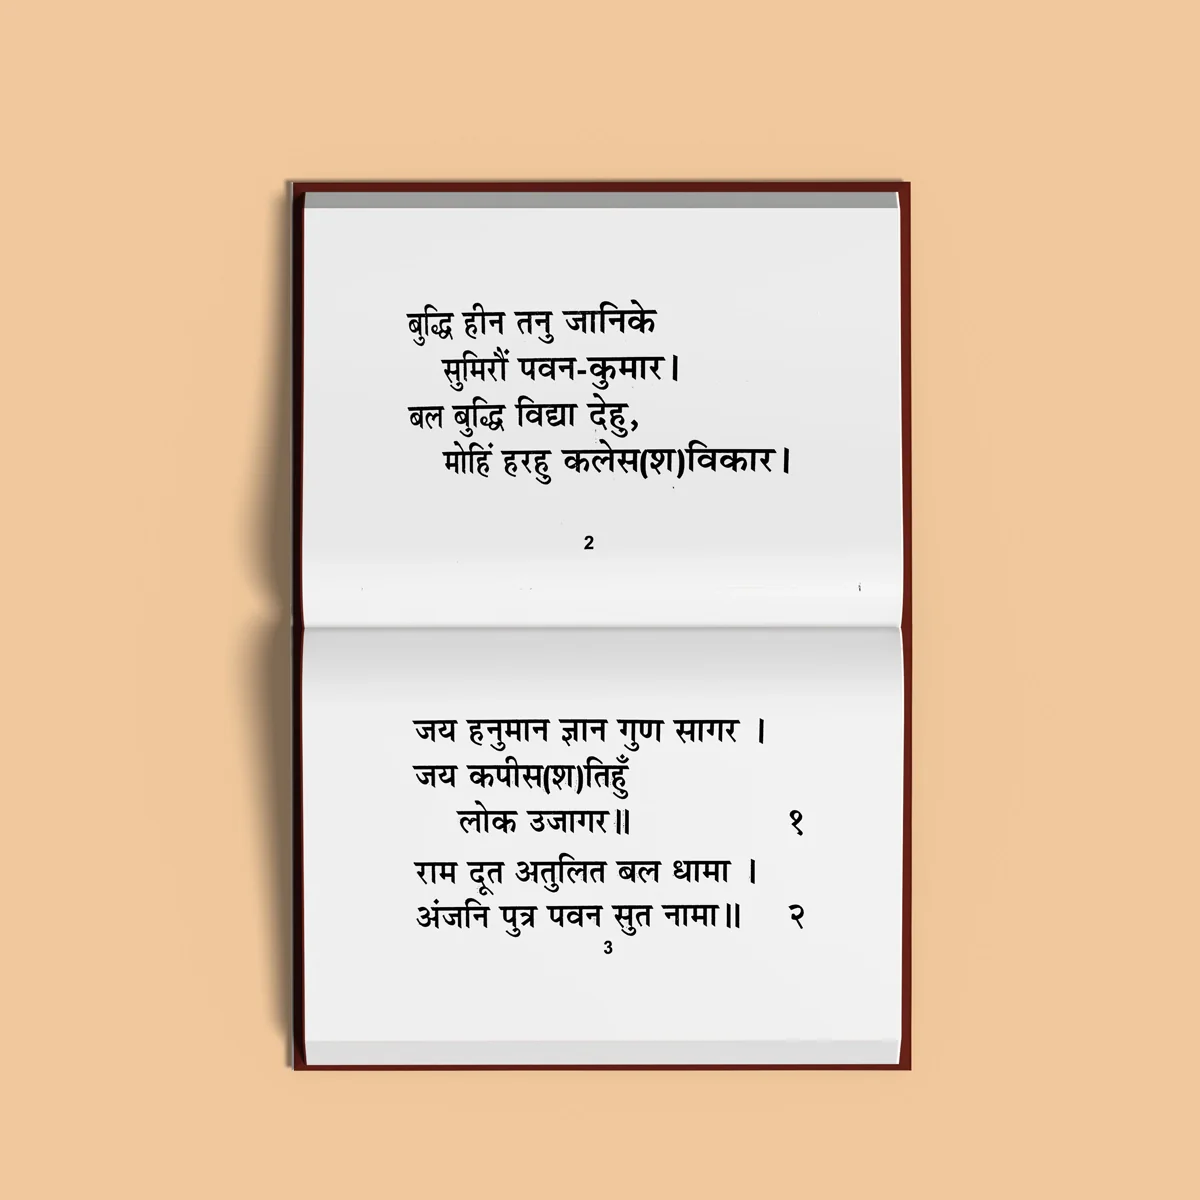 बुद्धि हीन तनु जानिके
सुमिरौं पवन-कुमार।
बल बुद्धि विद्या देहु,
मोहिं हरहु कलेस(श)विकार।
2
जय हनुमान ज्ञान गुण सागर ।
जय कपीस(श)तिहुँ
लोक उजागर॥ १
राम दूत अतुलित बल धामा ।
अंजनि पुत्र पवन सुत नामा॥ २
3